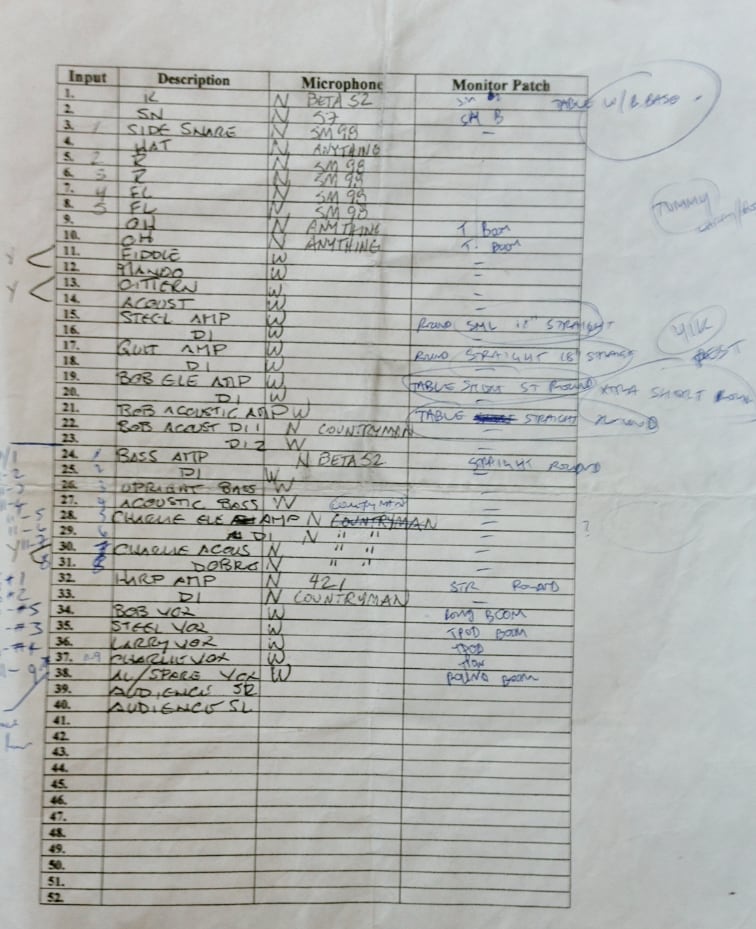 Input Description Microphone Monitor Patch
1. K N BETA 52 SM B TABLE W/B.BASE
2. SN N 57 SM B
3. 1 SIDE SNARE N SM 98 -
4. HAT N ANYTHING
5. 2 R N SM 98
6. 3 R N SM 98
7. 4 FL N SM 98
8. 5 FL N SM 98 TOMMY
9. OH N ANYTHING T BOOM
10. OH N ANYTHING T. BOOM
Y < 11. FIDDLE W -
12. MANDO W -
Y < 13. CITTERN W -
14. ACOUST W -
15. STEEL AMP W ROUND SML 18" STRAIGHT
16. DI W -
17. GUIT AMP W ROUND STRAIGHT 18"
18. DI W -
19. BOB ELE AMP W TABLE SHORT ST ROUND XTRA SHORT ROUND
20. DI W -
21. BOB ACOUSTIC AMP W TABLE STRAIGHT ROUND
22. BOB ACOUST DI 1 N COUNTRYMAN -
23. DI 2 W -
24. 1 BASS AMP N BETA 52 STRAIGHT ROUND
25. 2 DI W -
26. 3 UPRIGHT BASS W -
27. 4 ACOUSTIC BASS W COUNTRYMAN -
28. 5 CHARLIE ELE AMP N COUNTRYMAN -
29. 6 DI N " " - ?
30. 7 CHARLIE ACOUS N " " -
31. 8 DOBRO N " " -
32. HARP AMP N 421 STR ROUND
33. DI N COUNTRYMAN -
34. BOB VOX W LONG BOOM
35. STEEL VOX W TPOD BOOM
36. LARRY VOX W TPOD
37. CHARLIE VOX W
38. AL/SPARE VOX W ROUND BOOM
39. AUDIENCE SR
40. AUDIENCE SL
41.
42.
43.
44.
45.
46.
47.
48.
49.
50.
51.
52.